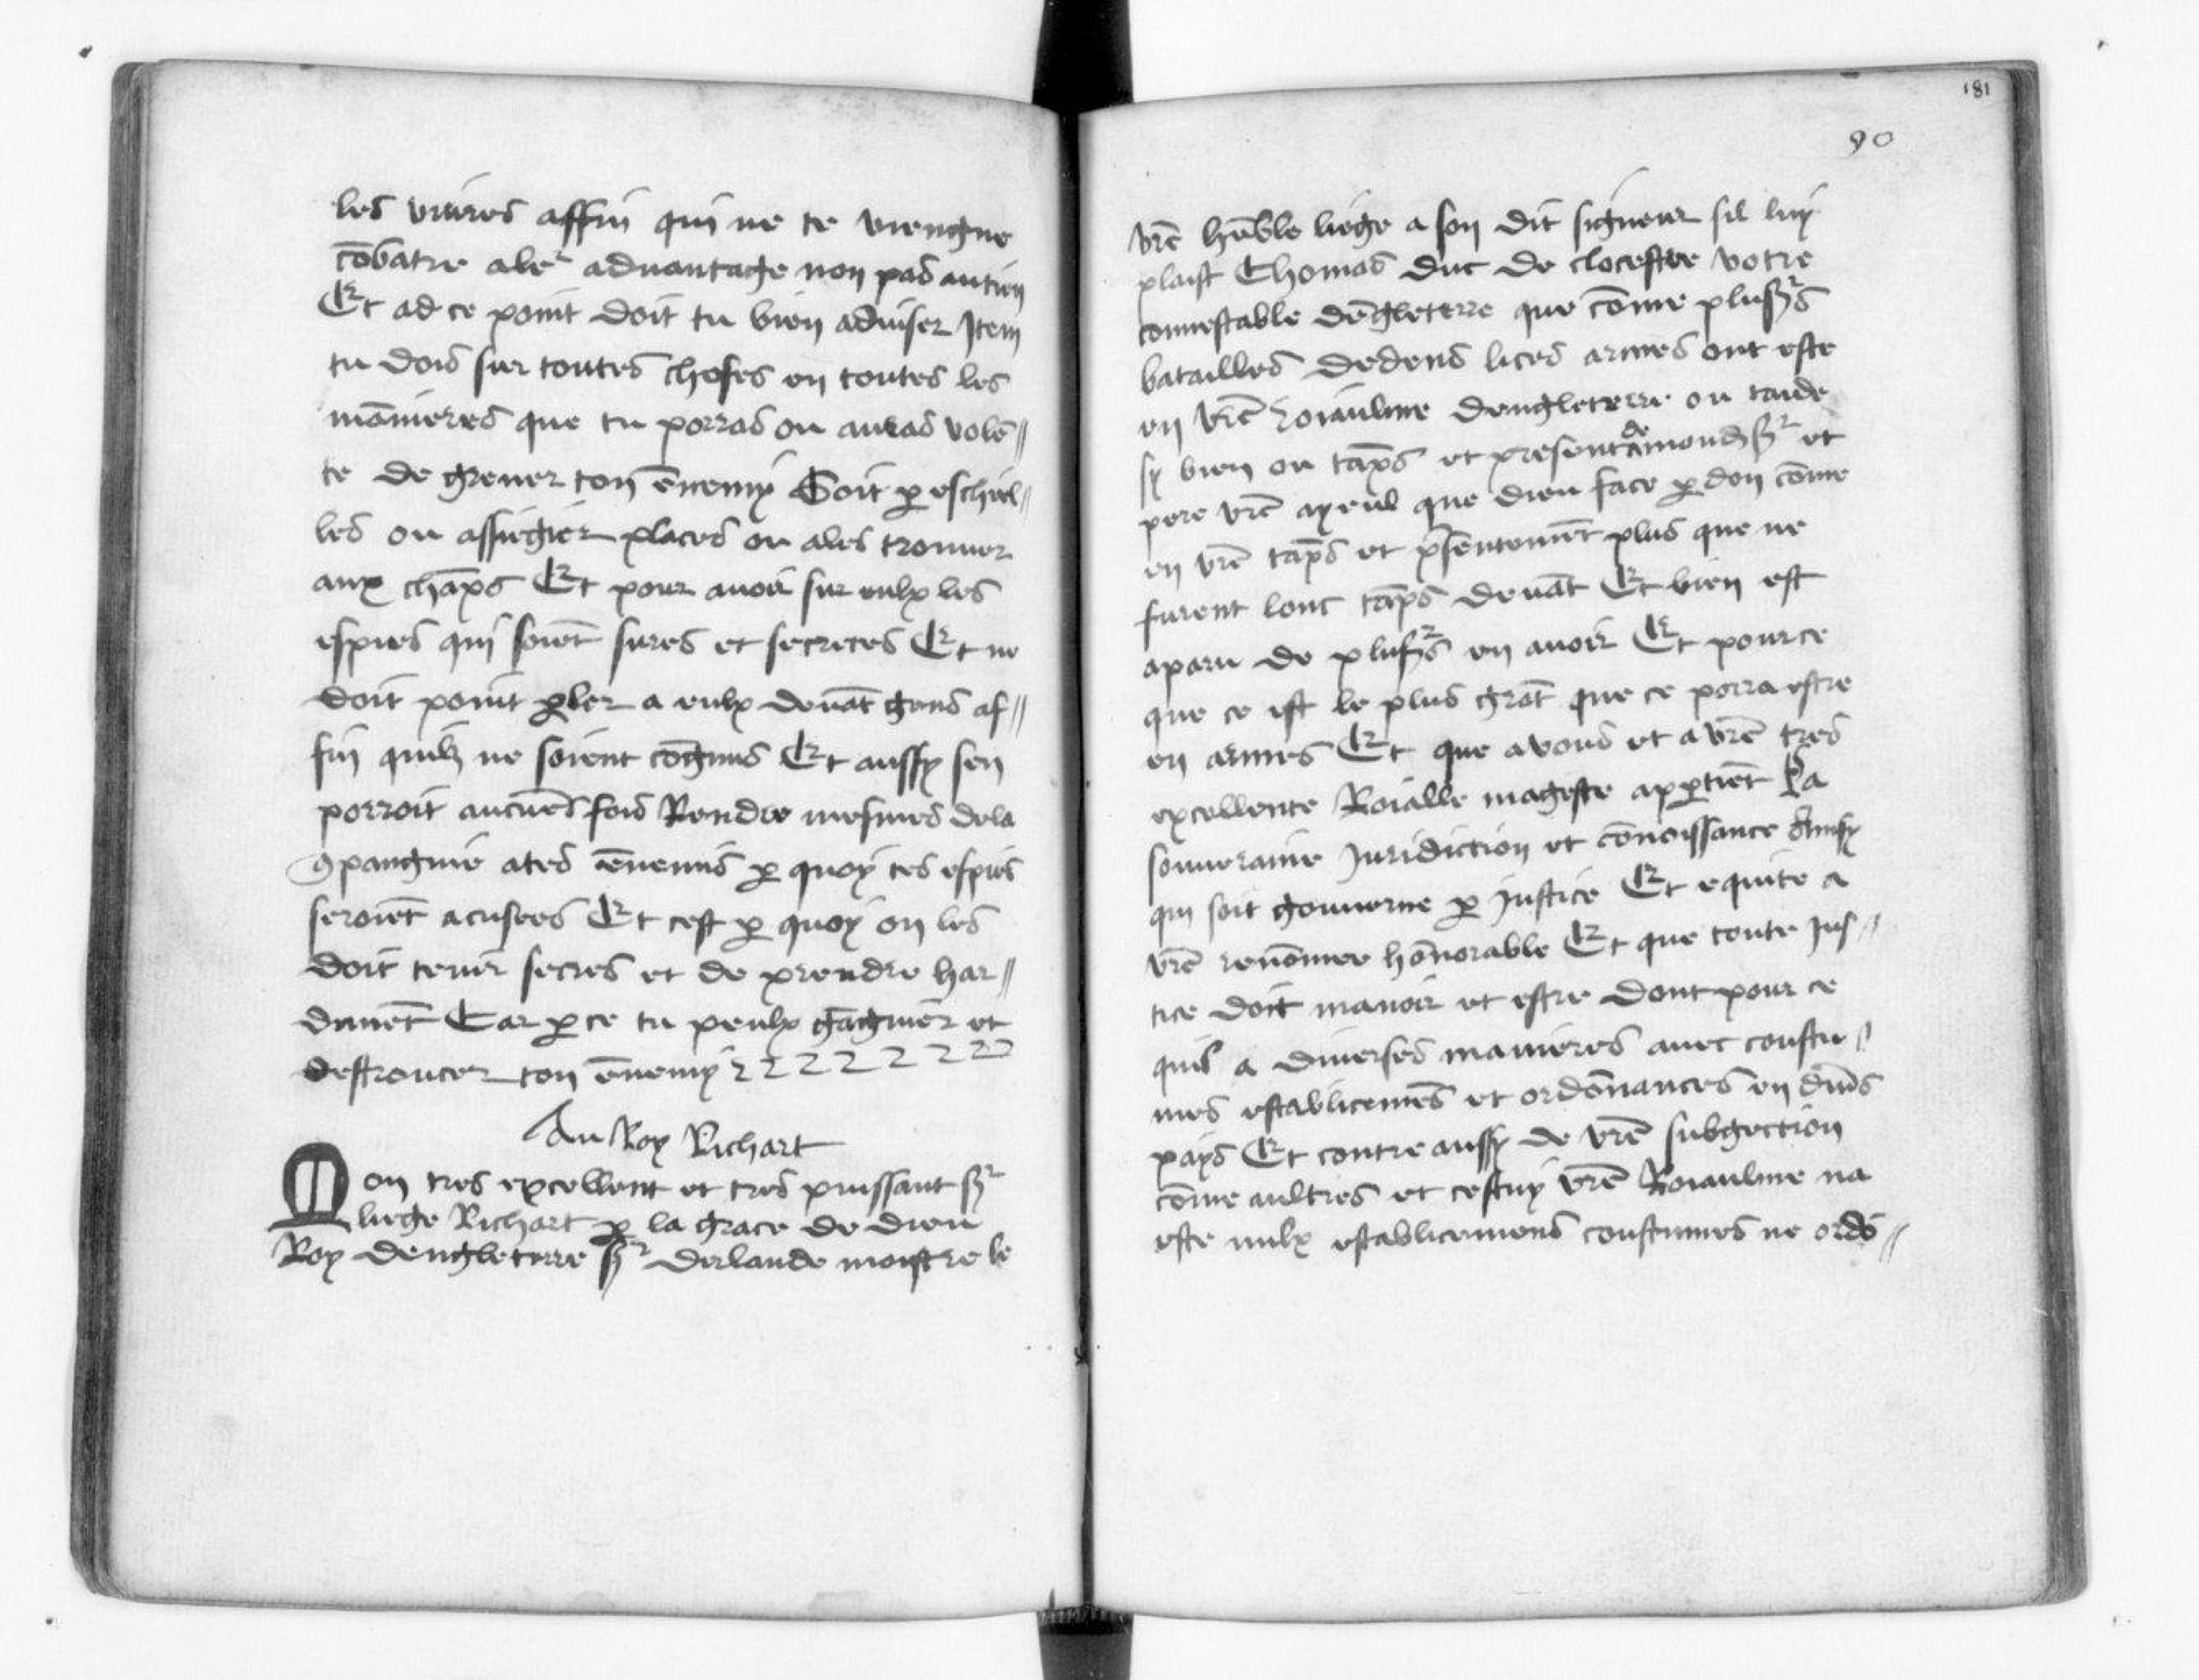 les vivres affin qui ne te viengne
cōbatre a leʳ advantage non pas au tien
Et ad ce point doit tu bien adviser Item
tu dois sur toutes choses en toutes les
mānieres que tu porras ou auras volē//
te de grever ton ēnemy Soit ꝑ eschiel//
les ou assiegier places ou ales trouver
aux chāps Et pour avoir sur eulx les
espies qui soiēt sures et secretes Et ne
doit point ꝑler a eulx devāt gens af//
fin quilz ne soient cōgnus Et aussy sen
porroit aucunes fois Rendre mesmes de la
ꝯpangnie a tes ēnemis ꝑ quoy tes espies
seroiēt acusees Et cest ꝑ quoy on les
doit tenir secres et de prendre har//
dimēt Car ꝑ ce tu peulx gāgnier et
destroucer ton ēnemy
Au Roy Richart
Mon tres excellent et tres puissant sʳ
liege Richart ꝑ la grace de dieu
Roy dengleterre sʳ dirlande monstre le
181
90
vrē hūble liege a son dit signeur sil luy
plaist Thomas duc de clocestre votre
connestable dēgleterre que cōme plusʳs
batailles dedens lices armes ont este
en vrē Roiaulme dengleterre ou tande
sy bien ou tāps et present de a mondz sʳ et
pere vrē ayeul que dieu face ꝑdon cōme
en vrē tāps et p̄sentemēt plus que ne
furent lonc tāps devāt Et bien est
aparu de plusʳs en avoir Et pour ce
que ce est le plus grāt que ce porra estre
en armes Et que a vous et a vrē tres
excellente Roialle mageste apꝑtiēt La
souveraine Juridiction et cōnoissance Ainsy
qui soit gouverne ꝑ justice Et equite a
vrē renōmee hōnorable Et que toute Jus//
tice doit manoir et estre dont pour ce
quil a diverses manieres avec coustu//
mes establicemēs et ordōnances en divs
pays Et contre aussy de vrē subgection
cōme aultres et cestuy vrē Roiaulme na
este nulx establicemens coustumes ne ordō//